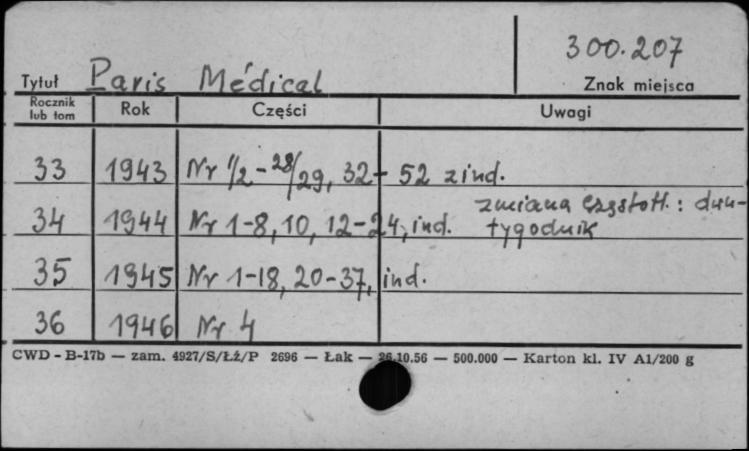 300.207
Tytuł Paris Médical Znak miejsca
Rocznik lub tom Rok Części Uwagi
33 1943 Nr 1/2-28/29, 32-52 z ind.
34 1944 Nr 1-8, 10, 12-24, ind. zmiana częstotl.: dwu-
tygodnik
35 1945 Nr 1-18, 20-37, ind.
36 1946 Nr 4
CWD - B-17b — zam. 4927/S/Łź/P 2696 — Łak — 26.10.56 — 500.000 — Karton kl. IV A1/200 g